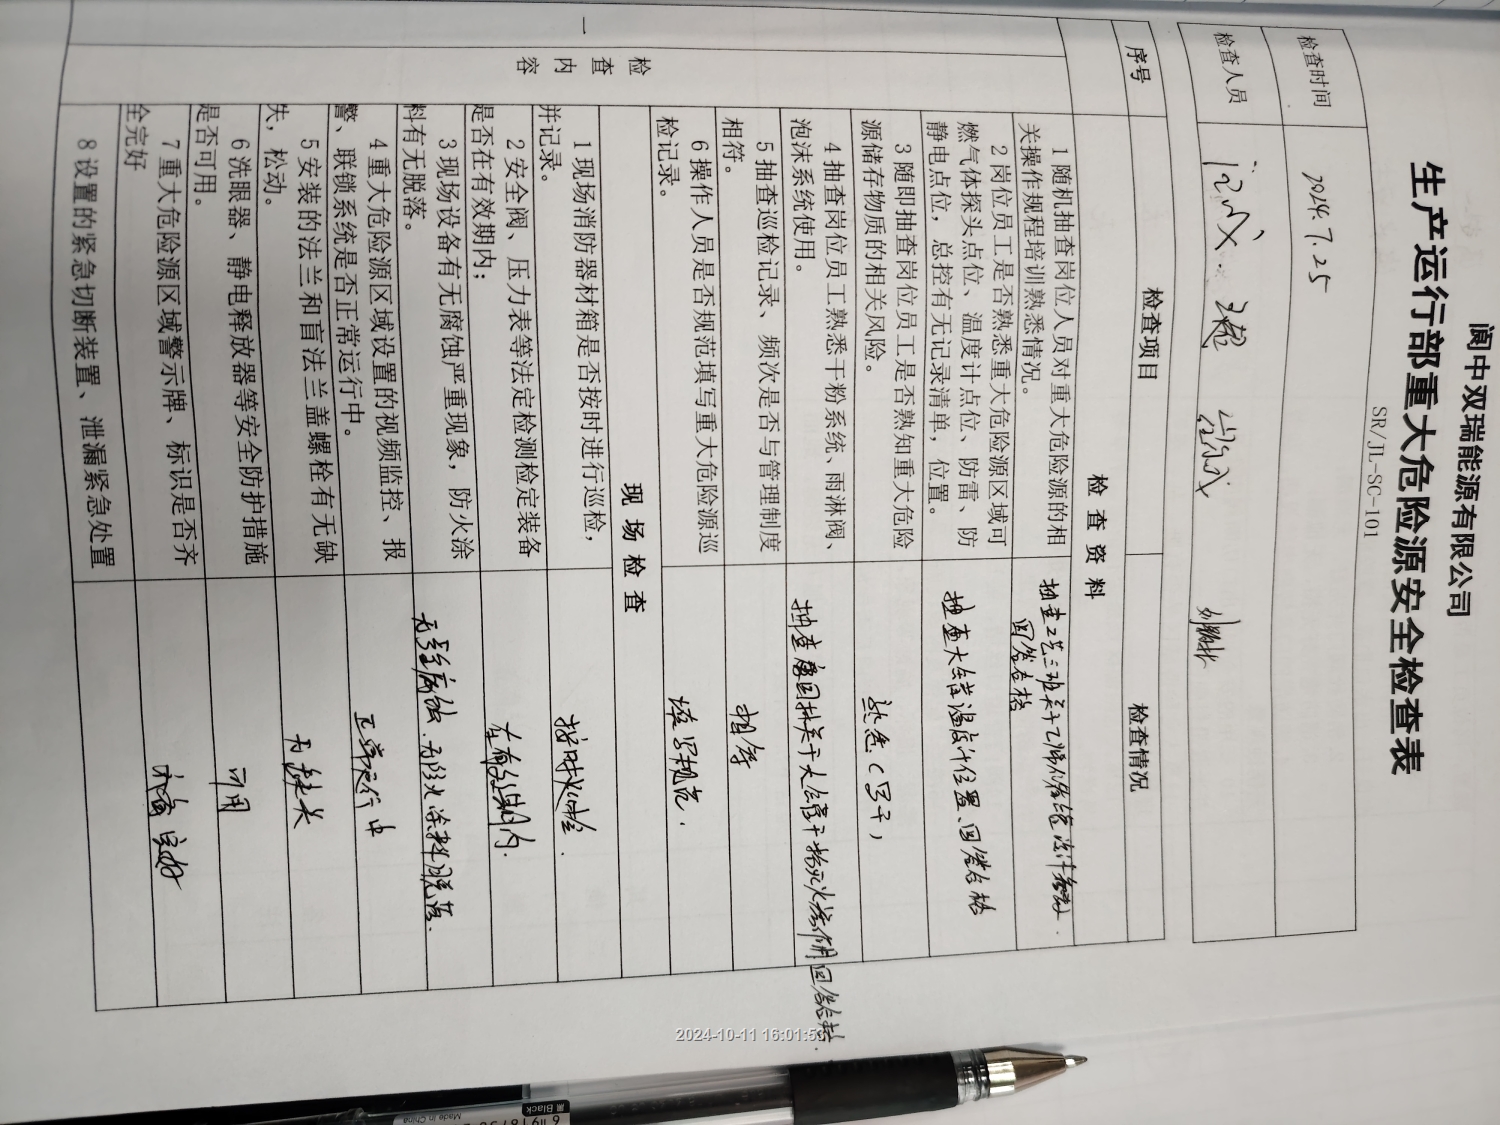 阆中双瑞能源有限公司
生产运行部重大危险源安全检查表
SR/JL-SC-101
检查时间 2024.7.25
检查人员
序号 检查项目 检查情况
一 检查内容
检查资料
1 随机抽查岗位人员对重大危险源的相
关操作规程培训熟悉情况。
回答合格
2 岗位员工是否熟悉重大危险源区域可
燃气体探头点位、温度计点位、防雷、防
静电点位，总控有无记录清单，位置。
抽查大储罐温度计位置、回答合格
3 随即抽查岗位员工是否熟知重大危险
源储存物质的相关风险。
熟悉
4 抽查岗位员工熟悉干粉系统、雨淋阀、
泡沫系统使用。
回答合格.
5 抽查巡检记录、频次是否与管理制度
相符。
相符
6 操作人员是否规范填写重大危险源巡
检记录。
填写规范.
现场检查
1 现场消防器材箱是否按时进行巡检，
并记录。
按时巡检.
2 安全阀、压力表等法定检测检定装备
是否在有效期内；
在有效期内.
3 现场设备有无腐蚀严重现象，防火涂
料有无脱落。
无严重腐蚀.无防火涂料脱落.
4 重大危险源区域设置的视频监控、报
警、联锁系统是否正常运行中。
正常运行中
5 安装的法兰和盲法兰盖螺栓有无缺
失，松动。
无缺失
6 洗眼器、静电释放器等安全防护措施
是否可用。
可用
7 重大危险源区域警示牌、标识是否齐
全完好
齐备完好
8 设置的紧急切断装置、泄漏紧急处置
2024-10-11 16:01:5
黑 Black
Made in China